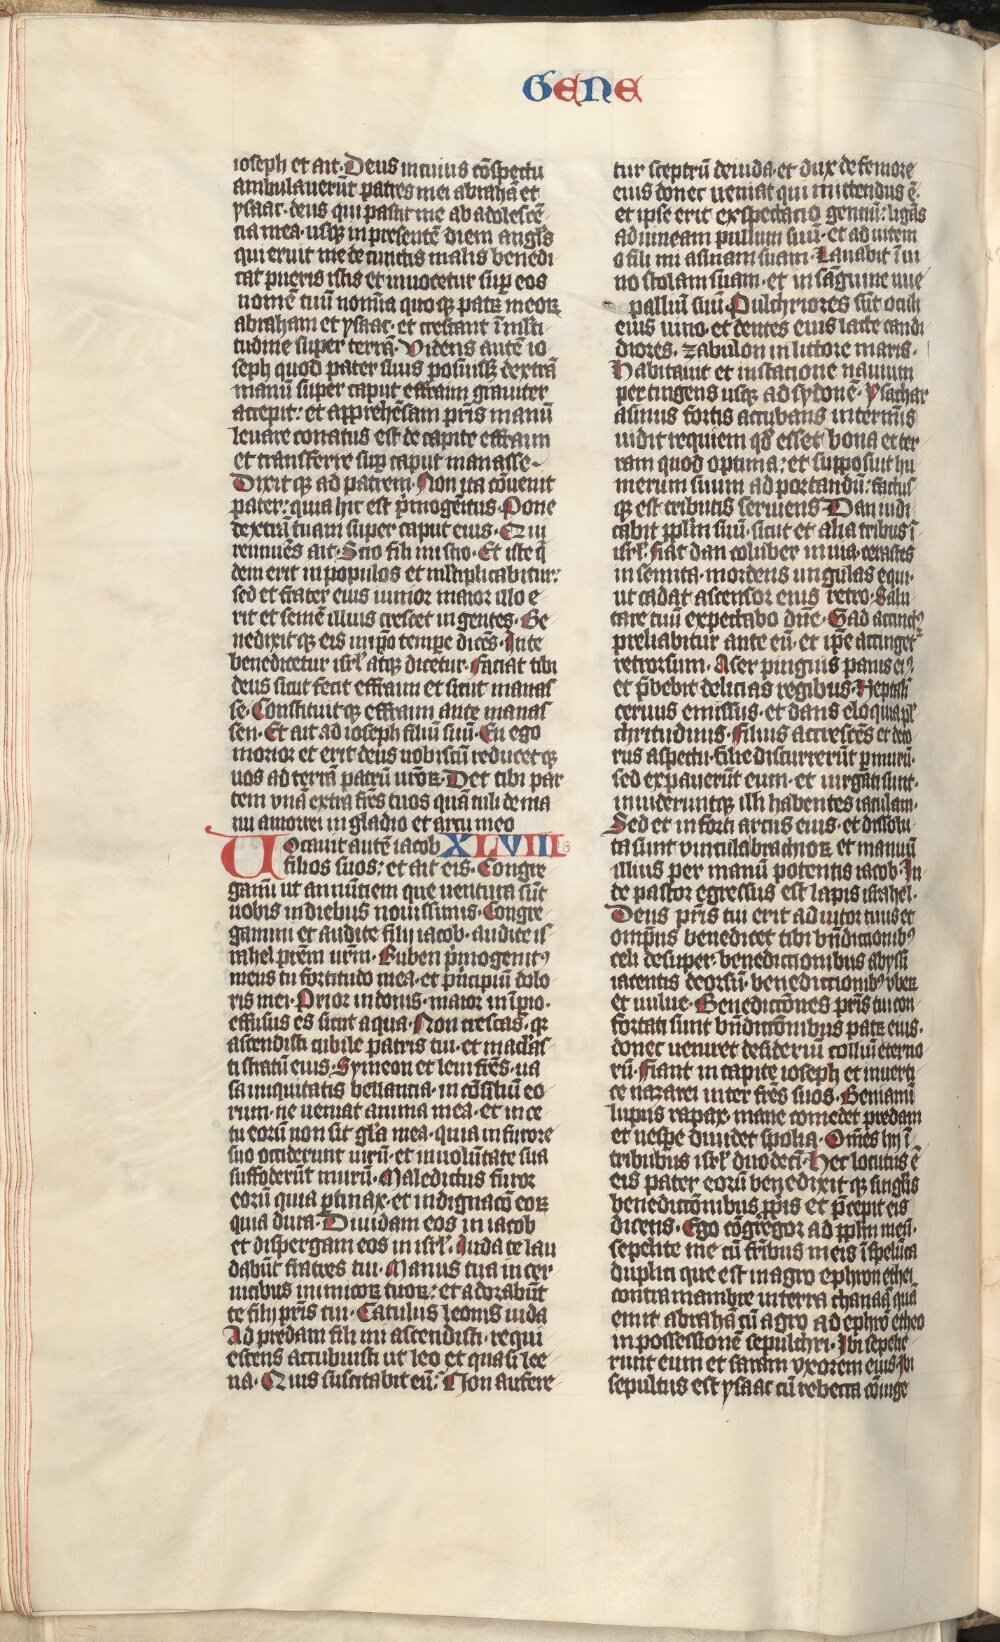 GENE
ioseph et ait. Deus in cuius cōspectu
ambulauerūt patres mei abrahā et
ysaac. deus qui pascit me ab adolescē
tia mea. usqꝫ in presentē diem angl̄s
qui eruit me de cunctis malis benedi
cat pueris istis et inuocetur suꝑ eos
nomē tuū nom̄ia quoqꝫ patꝝ meoꝝ
abraham et ysaac. et crescant ī ml̄ti
tudine super terrā. Videns autē io
seph quod pater suus posuissꝫ dextrā
manū super caput effraim grauiter
accepit: et apprehēsam pr̄is manū
leuare conatus est de capite effraim
et transferre suꝑ caput manasse.
Dixitqꝫ ad patrem. Non ita cōuenit
pater: quia hic est p̄mogenitus. Pone
dextrā tuam super caput eius. Qui
rennuēs ait. Scio fili mi scio. Et iste q̄
dem erit in populos et ml̄tiplicabitur:
sed et frater eius iunior maior illo e
rit et semē illius crescet in gentes. Be
nedixitqꝫ eis in ip̄o tempe dicēs. In te
benedicetur isrl̄ atqꝫ dicetur. Faciat tibi
deus sicut fecit effraim et sicut manas
se. Constituitqꝫ effraim ante manas
sen. Et ait ad ioseph filiū suū. En ego
morior et erit deus uobiscū reducetqꝫ
uos ad terrā patrū ur̄oꝝ. Det tibi par
tem vnā extra fr̄es tuos quā tuli de ma
nu amorrei in gladio et arcu meo
Uocauit autē iacob XLVIII
filios suos: et ait eis. Congre
gamī ut annūtiem que uentura sūt
uobis in diebus nouissimis. Congre
gamini et audite filij iacob. audite is
rahel pr̄em ur̄m. Ruben p̄mogenitꝰ
meus tu fortitudo mea. et p̄ncipiū dolo
ris mei. Prior in donis. maior in īpio.
effusus es sicut aqua. Non crescas. qꝛ
ascendisti cubile patris tui. et maclas
ti stratū eius. Symeon et leui fr̄es. ua
sa iniquitatis bellantia. in cōsiliū eo
rum. ne ueniat anima mea. et in ce
tu eorū non sit gl̄a mea. quia in furore
suo occiderunt uirū. et in uolūtate sua
suffoderūt murū. Maledictus furor
eorū quia ꝑtinax. et indignacō eoꝝ
quia dura. Diuidam eos in iacob
et dispergam eos in isrl̄. Iuda te lau
dabūt fratres tui. Manus tua in cer
uicibus inimicoꝝ tuoꝝ: et adorabūt
te filij pr̄is tui. Catulus leonis iuda
Ad predam fili mi ascendisti. requi
escens accubuisti ut leo et quasi lee
na. Quis suscitabit eū: Non aufere
tur sceptrū de iuda. et dux de femore
eius donec ueniat qui mittendus ē.
et ipse erit expectacio gentiū. ligās
ad uineam pullum suū. et ad uitem
o fili mi asinam suam. Lauabit ī ui
no stolam suam. et in sāguine uue
palliū suū. Pulchriores sūt oculi
eius uino. et dentes eius lacte candi
diores. Zabulon in littore maris.
habitauit et in stacione nauium
pertingens usqꝫ ad sydonē. Ysachar
asinus fortis accubans inter tm̄is
uidit requiem qd̄ esset bona et ter
ram quod optima: et supposuit hu
merum suum ad portandū: factus
qꝫ est tributis seruiens Dan iudi
cabit ppl̄m suū. sicut et alia tribus ī
isrl̄. Fiat dan coluber in uia. cerastes
in semita. mordens ungulas equi.
ut cadat ascensor eius retro. Salu
tare tuū expectabo dn̄e. Gad accinctꝰ
preliabitur ante eū. et ip̄e accinget̄
retrorsum. Aser pinguis panis eiꝰ.
et p̄bebit delicias regibus. Neptali
ceruus emissus. et dans eloquia pl̄
chritudinis. Filius accrescēs et deco
rus aspectu. filie discurrerūt ꝑ murū.
sed expauerūt eum. et iurgati sunt.
inuideruntqꝫ illi habentes iacula.
Sed et in forti arcus eius. et dissolu
ta sunt uincula brachioꝝ et manuū
illius per manū potentis iacob. In
de pastor egressus est lapis israhel.
Deus pr̄is tui erit adiutor tuus et
omp̄ns benedicet tibi bn̄dictionibꝰ
celi desuper. benedictionibus abyssi
iacentis deorsū. benedictionibꝰ vbeꝝ
et uulue. Benedictōnes pr̄is tui con
fortati sunt bn̄dictōnibus patꝝ eius.
donec ueniret desideriū colliū eterno
rū. Fiant in capite ioseph et in uerti
ce nazarei inter fr̄es suos. Beniamī
lupus rapax. mane comedet predam
et uespe diuidet spolia. Om̄es hij ī
tribubus isrl̄ duodecī. Hec locutus ē
eis pater eorū benedixitqꝫ singlis
benedictōnibus pp̄is et p̄cepit eis
dicens. Ego cōgregor ad ppl̄m meū.
sepelite me cū fr̄ibus meis ī spelūca
duplici que est in agro ephron ethei
contra mambre in terra chanaā quā
emit abrahā cū agro ad ephrō etheo
in possessionē sepulchri. Ibi sepelie
runt eum et saram vxorem eius. Ibi
sepultus est ysaac cū rebecca cōiuge